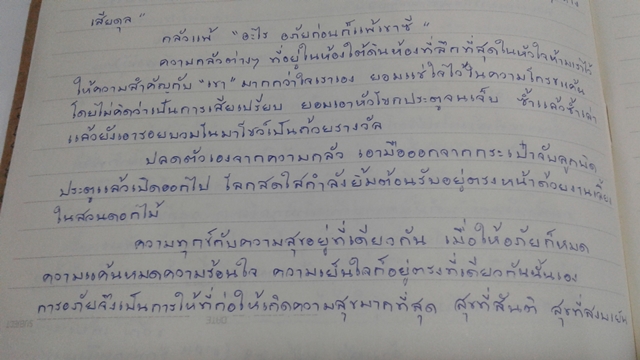 เสียดุล"
กลัวแพ้ "อะไร อภัยก่อนก็แพ้เขาซี"
ความกลัวต่างๆ ที่อยู่ในห้องใต้ดินห้องที่ลึกที่สุดในหัวใจห้ามเราไว้
ให้ความสำคัญกับ "เขา" มากกว่าใจเราเอง ยอมแช่ใจไว้ในความโกรธแค้น
โดยไม่คิดว่าเป็นการเสียเปรียบ ยอมเอาหัวโขกประตูจนเจ็บ ซ้ำแล้วซ้ำเล่า
แล้วยังเอารอยบวมโนมาโชว์เป็นถ้วยรางวัล
ปลดตัวเองจากความกลัว เอามือออกจากกระเป๋าจับลูกบิด
ประตูแล้วเปิดออกไป โลกสดใสกำลังยิ้มต้อนรับอยู่ตรงหน้าด้วยงานเลี้ยง
ในสวนดอกไม้
ความทุกข์กับความสุขอยู่ที่เดียวกัน เมื่อให้อภัยก็หมด
ความแค้นหมดความร้อนใจ ความเย็นใจก็อยู่ตรงที่เดียวกันนั้นเอง
การอภัยจึงเป็นการให้ที่ก่อให้เกิดความสุขมากที่สุด สุขที่สันติ สุขที่สงบเย็น